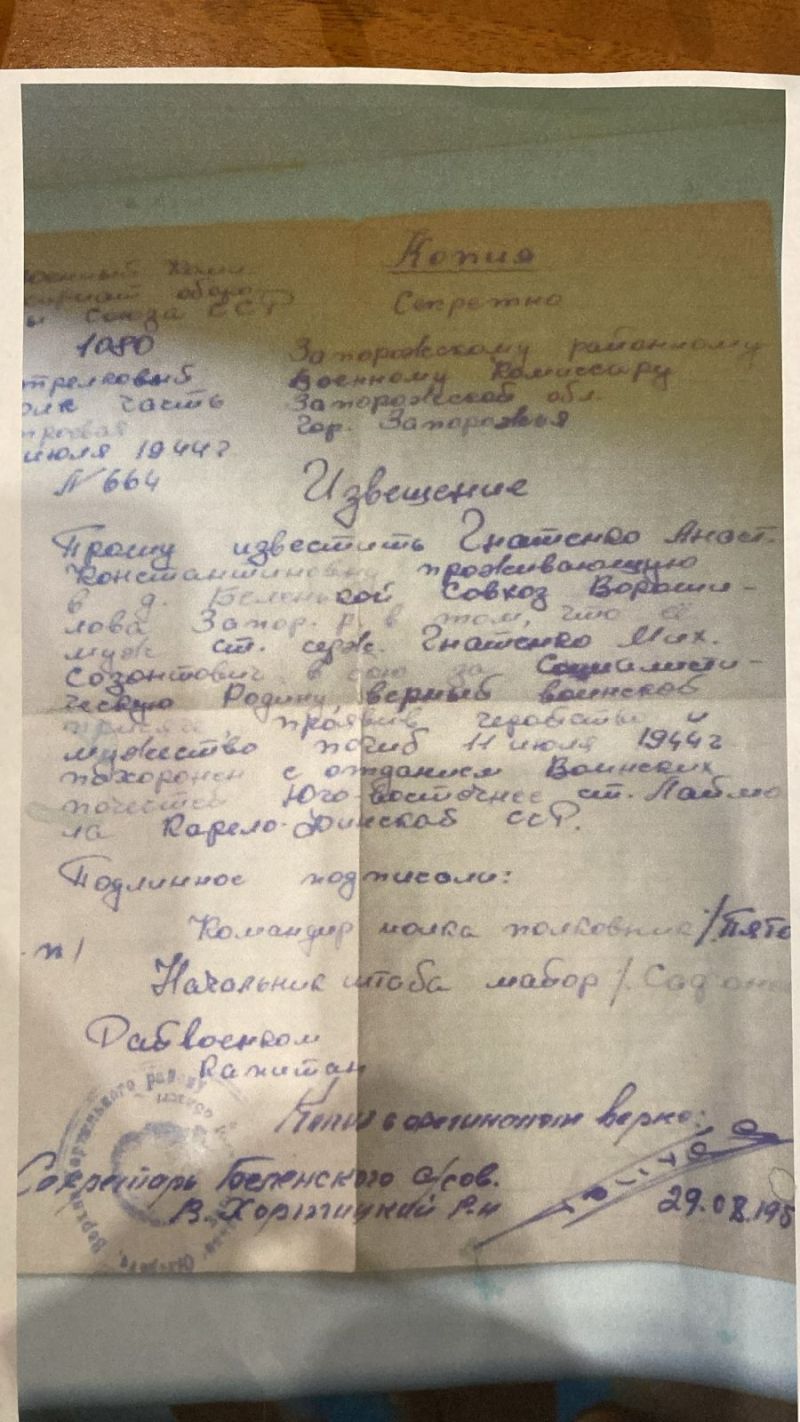 Копия
Секретно
ны Союза ССР
1080
Запорожскому районному
Военному Комиссару
часть
Запорожской обл.
гор. Запорожья
июля 1944 г
N 664
Извещение
Прошу известить Гнатенко Анаст.
Константиновну проживающую
в д. Беленькой Совхоз Вороши-
лова Запор. р. в том, что её
муж ст. серж. Гнатенко Мих.
Созонтович в бою за Социалисти-
ческую Родину, верный воинской
присяге, проявив геройство и
мужество погиб 11 июля 1944 г
похоронен с отданием Воинских
почестей Юго-Восточнее ст. Лаймо
ла Карело-Финской ССР.
Подлинное подписали:
Командир полка полковник /
п/
Начальник штаба майор /
Райвоенком
капитан
Копия с оригиналом верна:
Секретарь с/сов.
В. Хортицкий р-н
29.08.195